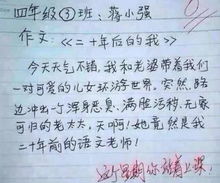 四年级③班:蒋小强
作文:《二十年后的我》
今天天气不错,我和老婆带着我们
一对可爱的儿女环游世界,突然,路
边冲出一个浑身恶臭、满脸污秽、无家
可归的老太太,天啊!她竟然是我
二十年前的语文老师!
这个星期你站着上课!